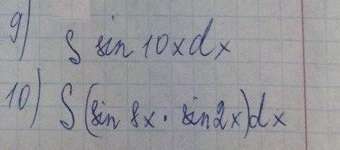 9) ∫ sin 10x dx
10) ∫ (sin 8x · sin 2x) dx